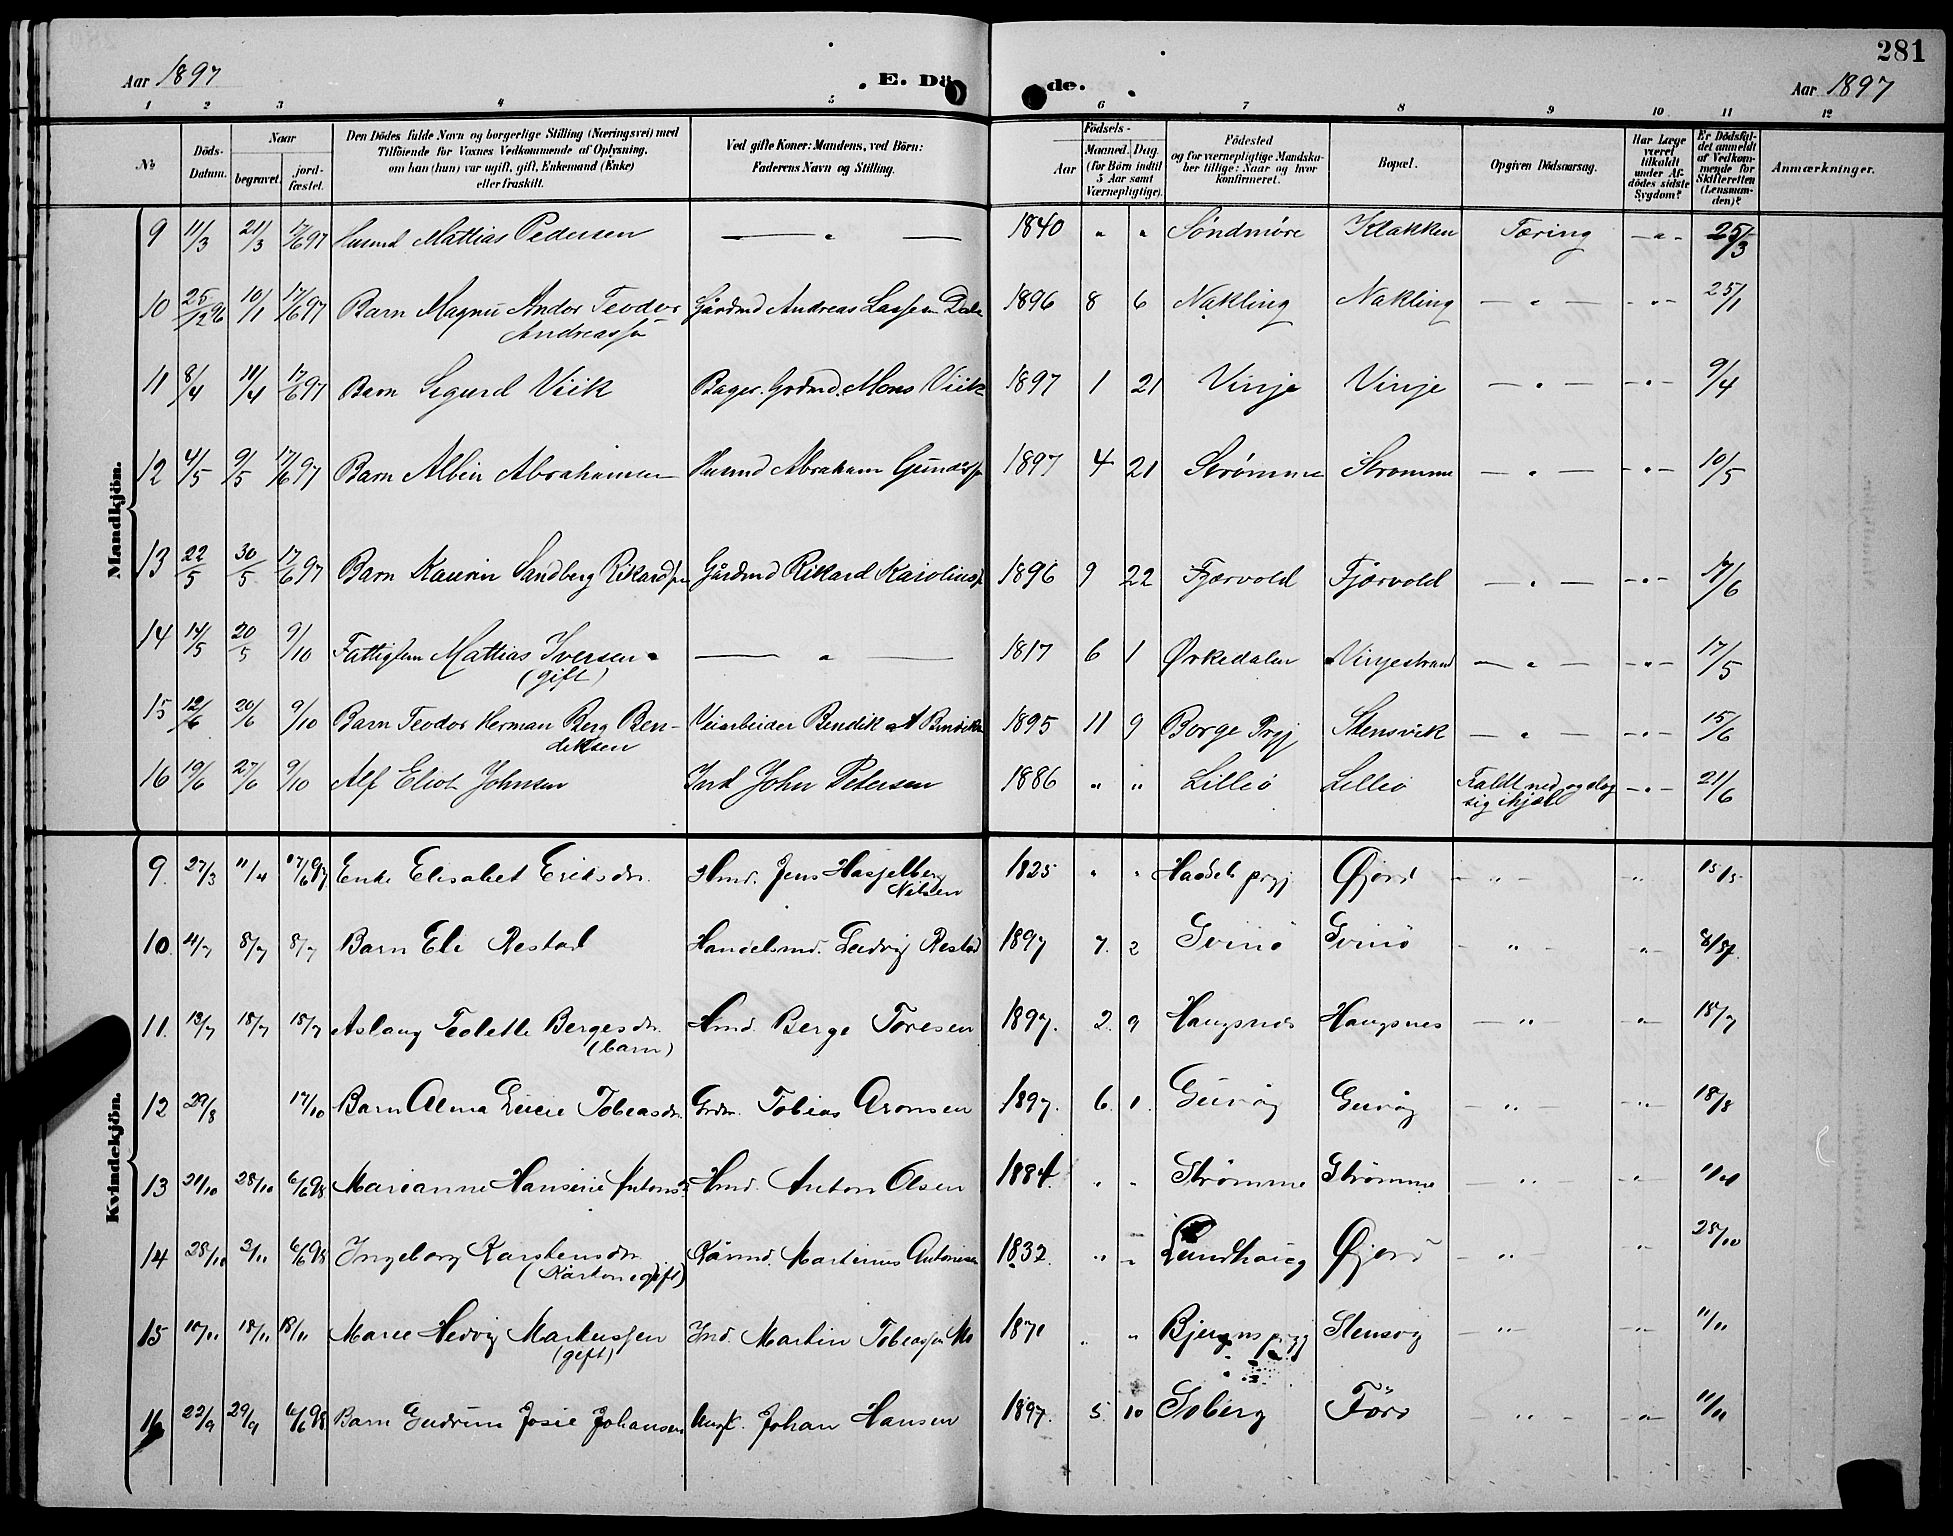 281
Aar 1897 E. Dö de. Aar 1897
1 2 3 4 5 6 7 8 9 10 11 12
No.
Döds-Datum.
Naar
begravet.
jord-fæstet.
Den Dödes fulde Navn og borgerlige Stilling (Næringsvei) med
Tilföiende for Voxnes Vedkommende af Oplysning,
om han (hun) var ugift, gift, Enkemand (Enke)
eller fraskilt.
Ved gifte Koner: Mandens, ved Börn:
Faderens Navn og Stilling.
Födsels-
Aar
Maaned. Dag.
(for Börn indtil
5 Aar samt
Værnepligtige).
Födested
og for værnepligtige Mandska-
ber tillige: Naar og hvor
konfirmeret.
Bopæl.
Opgiven Dödsaarsag.
Har Læge
været
tilkaldt
under Af-
dödes sidste
Sygdom?
Er Dödsfal-
det anmeldt
af Vedkom-
mende for
Skifteretten
(Lensman-
den)?
Anmærkninger.
Mandkjön.
9 11/3 21/3 17/6 97 Husmd Mattias Pedersen — " — 1840 " " Søndmøre Klakken Tæring — " — 25/3
10 25/12 96 10/1 17/6 97 Barn Magnus Andor Teodor Gårdmd Andreas Lassen 1896 8 6 Nakling Nakling — " — — " — 25/1
Andreassen
11 8/4 11/4 17/6 97 Barn Sigurd Viik Bager. Grdmd. Mons Viik 1897 1 21 Vinje Vinje — " — — " — 9/4
12 4/5 9/5 17/6 97 Barn Albin Abrahamsen Husmd Abraham 1897 4 21 Strømme Strømme — " — — " — 10/5
13 22/5 30/5 17/6 97 Barn Kaurin Sandberg Rikardsen Gårdmd Rikard Karolius 1896 9 22 Fjærvold Fjærvold — " — — " — 17/6
14 14/5 20/5 9/10 Fattiglem Mattias Iversen — " — 1817 6 1 Ørkedalen Vinjestrand — " — — " — 17/5
(gift)
15 12/6 20/6 9/10 Barn Teodor Herman Berg Ben- Veiarbeider Bendik A 1895 11 9 Borge Prgj Stensvik — " — — " — 15/6
diksen
16 19/6 27/6 9/10 Alf Eliot Johnsen Ind John Petersen 1886 " " Lilleø Lilleø Faldt ned og slog — " — 21/6
sig ihjæl
Kvindekjön.
9. 27/3 11/4 17/6 97 Enke Elisabet Eriksdr. Hmd. Jens Hasjelberg 1825 " " Hadsels prgj Øjord — " — " 15/5
Nilsen
10. 4/7 8/7 8/7 Barn Eli Restad Handelsmd. Ludvig Restad 1897 7. 2 Svinø Svinø — " — "
11. 13/7 18/7 18/7 Aslaug Teolette Bergesdr. Hmd. Berge Toresen 1897. 2. 9 Haugsnes Haugsnes — " — " 18/7
(barn)
12 29/8 17/10 Barn Alma Tobiasdr. Grdm. Tobias Aronsen 1897. 6. 1. — " — " 18/8
13 21/10 28/10 6/6 98 Marianne Hansine Antonsdr Hmd. Anton Olsen 1884. " " Strømme Strømme " "
14 28/10 2/11 6/6 98 Ingeborg Karstensdr. Martinus Antonisen 1832. " " Sundhaug Øjord — " — " 28/10
(gift)
15 10/11 18/11 18/11 Marie Hedvig Markussen Ind. Martin Tobiassen Mo 1871 " " prgj Stensvig — " — " 11/11
(gift)
16 22/9 29/9 6/6 98 Barn Gudrun Josie Johansen Ungk. Johan Hansen 1897. 5. 10 Soberg Förø " — " 11/11